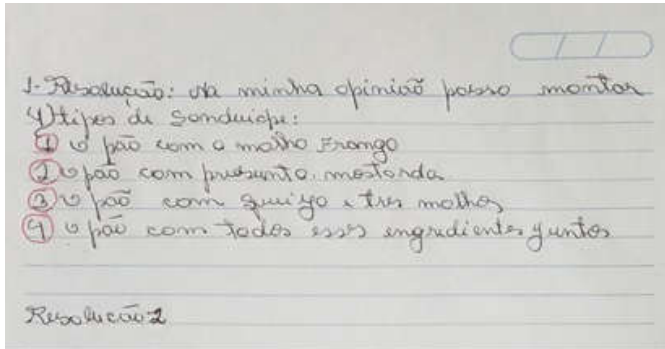 1- Resolução: Na minha opinião posso montar
4) tipos de sanduiche:
① o pão com o molho Frango
② o pão com presunto. mostarda
③ o pão com queijo e tres molhos
④ o pão com todos esses engredientes juntos
Resolução 2